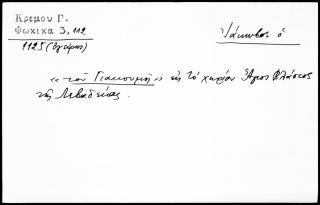 Κρεμου Γ.
Φωκικα 3, 112
1125 (Έγαρσις)
Ἰάκωβος ὁ
«τοῦ Γιακουμῆ» εἰς τὸ χωρίον Ἅγιος Βλάσιος
τῆς Λεβαδείας.